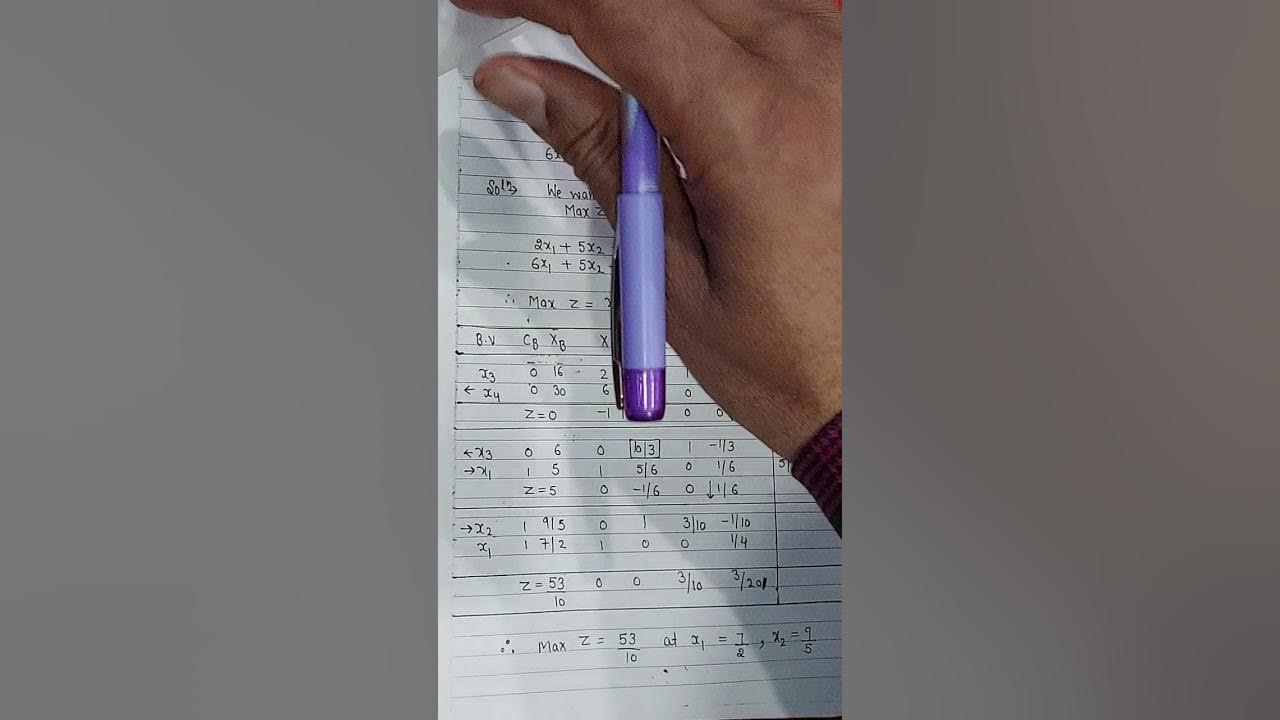 6x
Solⁿ→ We wan
Max Z
2x₁ + 5x₂
6x₁ + 5x₂
∴ Max Z =
B.V C_B X_B X
x₃ 0 16 2 1
← x₄ 0 30 6 0
Z=0 -1 0 0
←x₃ 0 6 0 10/3 1 -1/3
→x₁ 1 5 1 5/6 0 1/6 5/
Z=5 0 -1/6 0 ↓1/6
→x₂ 1 9/5 0 1 3/10 -1/10
x₁ 1 7/2 1 0 0 1/4
Z = 53/10 0 0 3/10 3/20
∴ Max Z = 53/10 at x₁ = 7/2, x₂ = 9/5